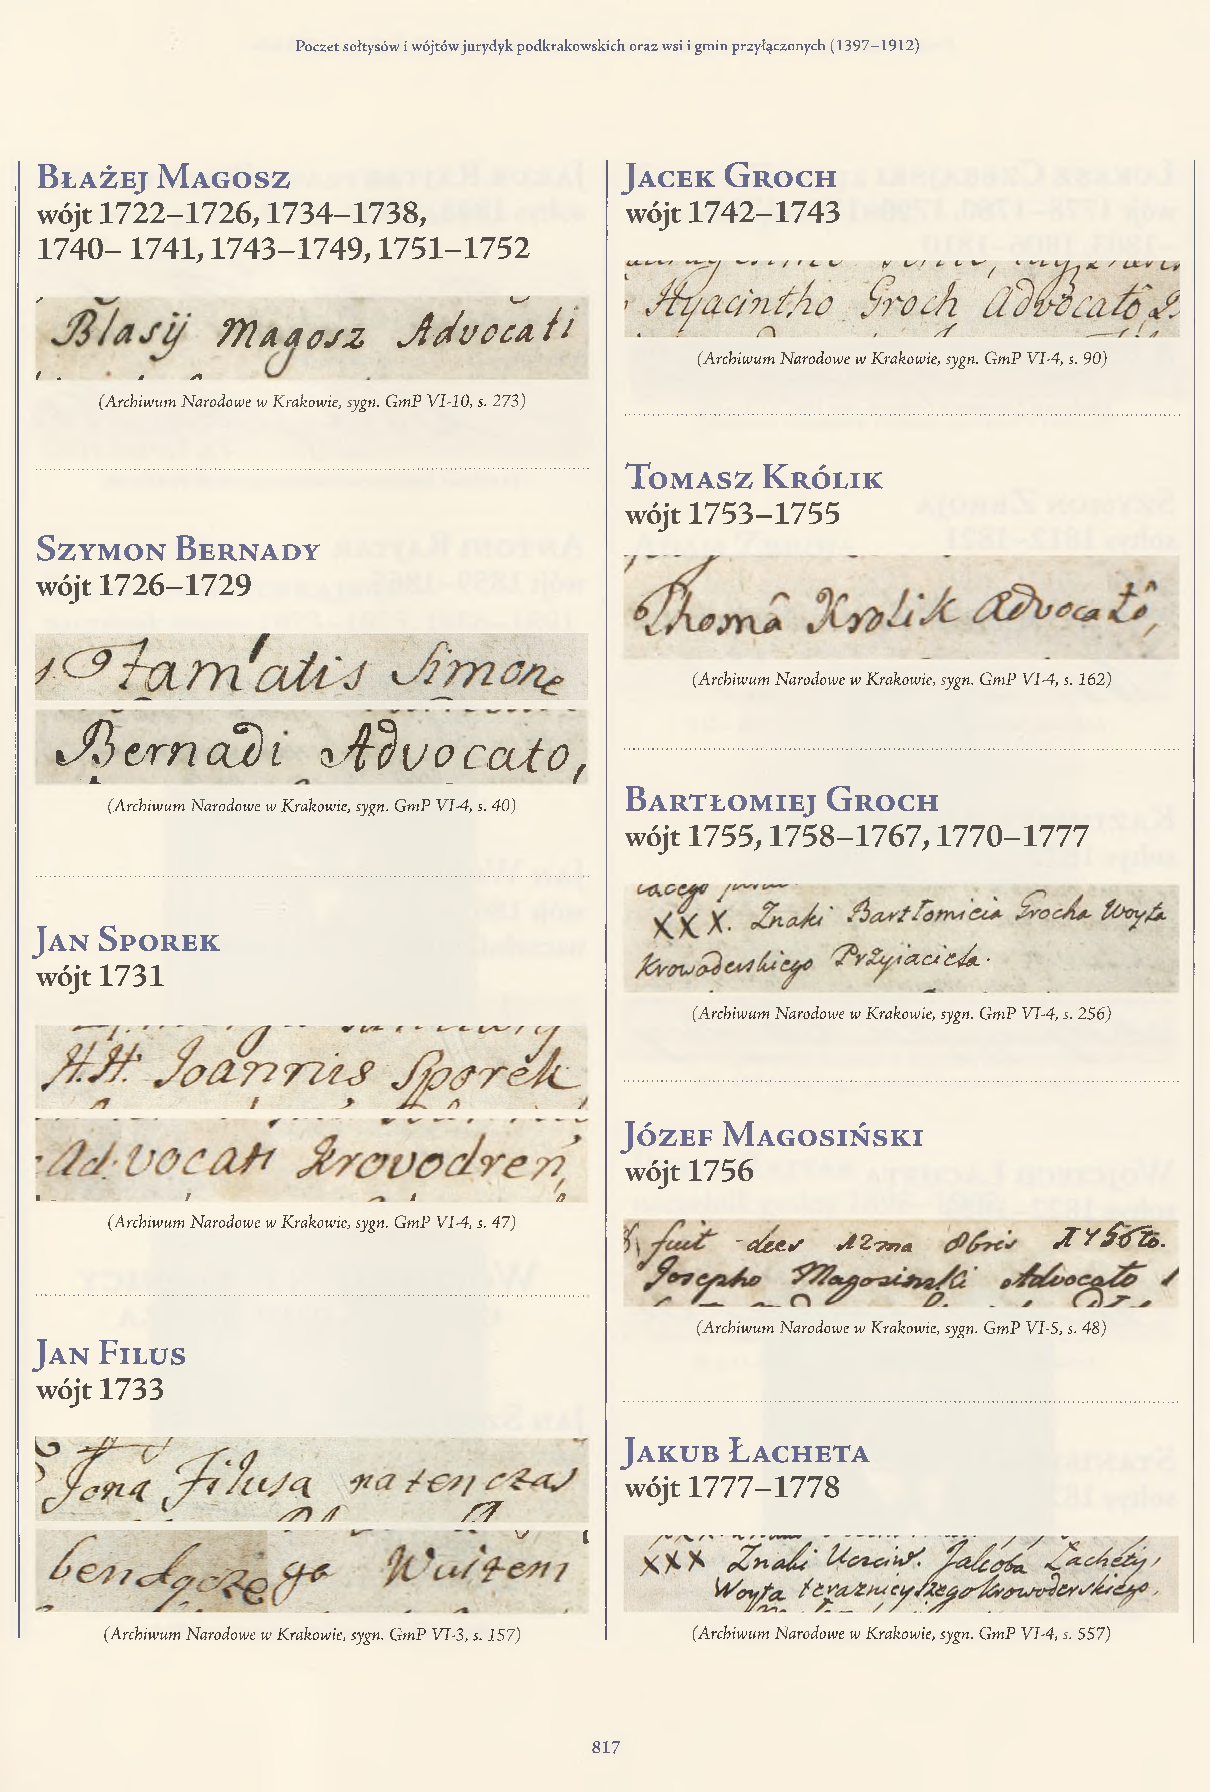 Poczet sołtysów i wójtów jurydyk podkrakowskich oraz wsi i gmin przyłączonych (1397–1912)
Błażej Magosz
wójt 1722–1726, 1734–1738,
1740– 1741, 1743–1749, 1751–1752
Blasij Magosz Advocati
(Archiwum Narodowe w Krakowie, sygn. GmP VI-10, s. 273)
Szymon Bernady
wójt 1726–1729
Famatis Simone
Bernadi Advocato,
(Archiwum Narodowe w Krakowie, sygn. GmP VI-4, s. 40)
Jan Sporek
wójt 1731
H.H. Joannis Sporek
Advocati Krovodren,
(Archiwum Narodowe w Krakowie, sygn. GmP VI-4, s. 47)
Jan Filus
wójt 1733
Jona Filusa natenczas
bendączego Wuitem
(Archiwum Narodowe w Krakowie, sygn. GmP VI-3, s. 157)
Jacek Groch
wójt 1742–1743
Hyacintho Groch Advocato
(Archiwum Narodowe w Krakowie, sygn. GmP VI-4, s. 90)
Tomasz Królik
wójt 1753–1755
Thomâ Krolik Advocatô,
(Archiwum Narodowe w Krakowie, sygn. GmP VI-4, s. 162)
Bartłomiej Groch
wójt 1755, 1758–1767, 1770–1777
XXX. Znaki Bartłomieia Grocha Woyta
Krowoderskiego Przyiaciela.
(Archiwum Narodowe w Krakowie, sygn. GmP VI-4, s. 256)
Józef Magosiński
wójt 1756
fuit dies 12ma 8bris 1756to.
Josepho Magosinski Advocato
(Archiwum Narodowe w Krakowie, sygn. GmP VI-5, s. 48)
Jakub Łacheta
wójt 1777–1778
XXX Znaki Uczciw. Jakoba Łachety,
Woyta teraznieyszego Krowoderskiego.
(Archiwum Narodowe w Krakowie, sygn. GmP VI-4, s. 557)
817